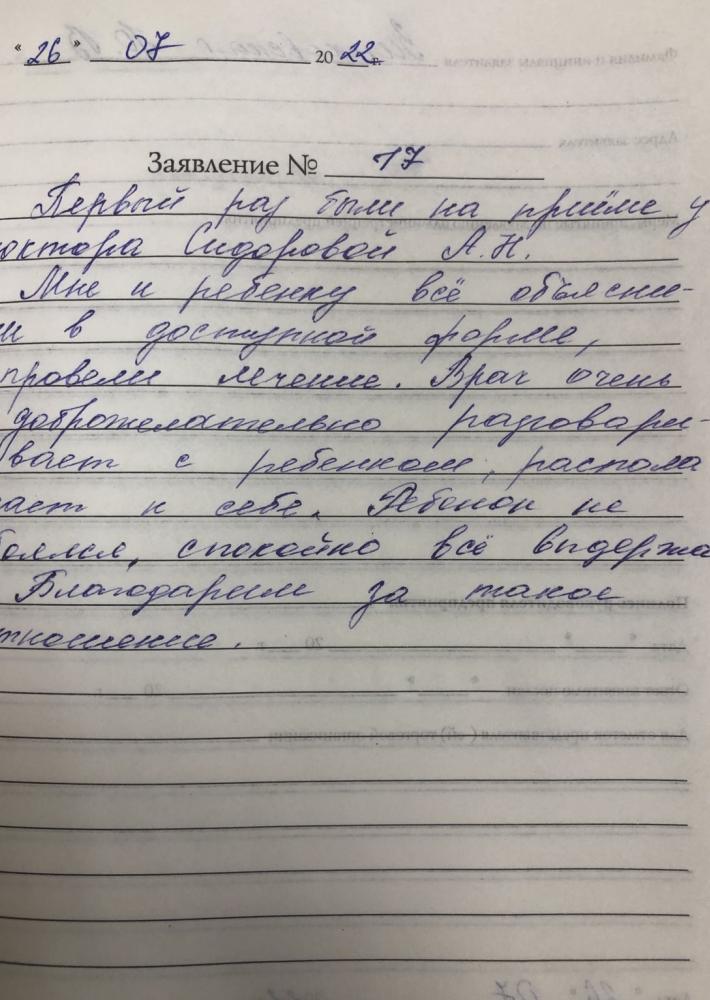 "26" 07 2022 г.
Заявление № 17
Первый раз были на приёме у
октора Сидоровой А.Н.
Мне и ребенку всё объясни-
и в доступной форме,
провели лечение. Врач очень
доброжелательно разговари-
вает с ребенком, распола
ает к себе. Ребенок не
боялся, спокойно всё выдержа
Благодарим за такое
тношение.